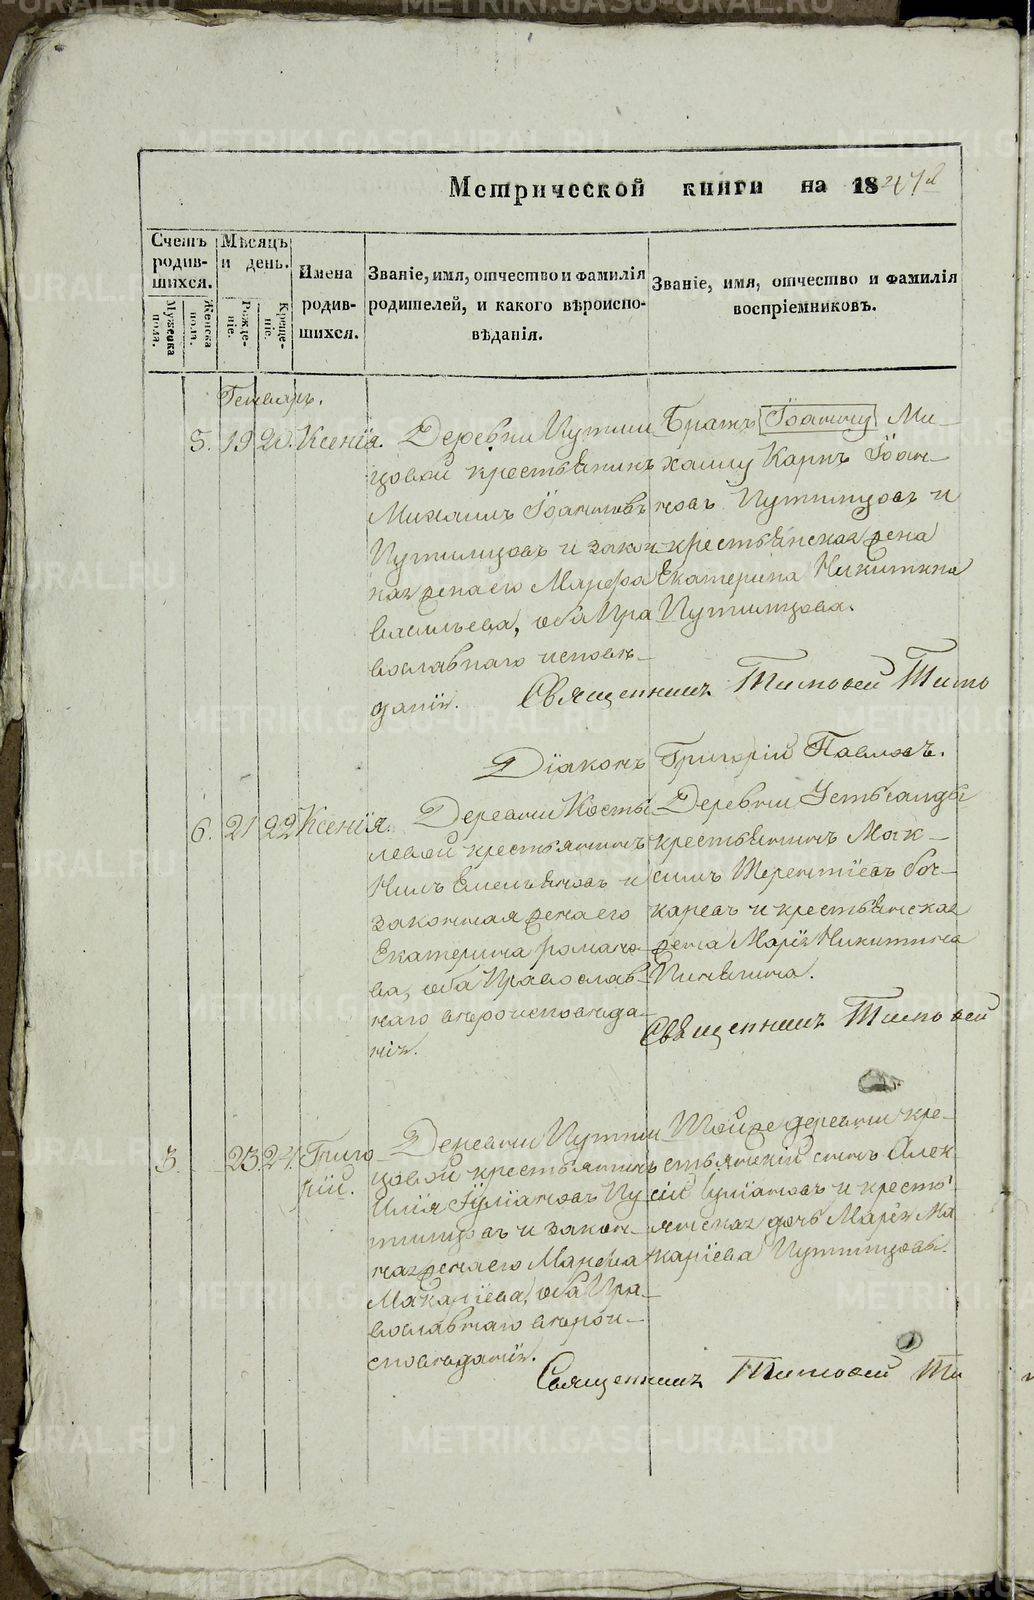 METRIKI.GASO-URAL.RU
Метрической книги на 1847й
Счетъ родив-шихся.
Мужеска пола.
Женска пола.
Мѣсяцъ и день.
Рожде-ніе.
Креще-ніе.
Имена родив-шихся.
Званіе, имя, отчество и фамилія
родителей, и какого вѣроиспо-
вѣданія.
Званіе, имя, отчество и фамилія
воспріемниковъ.
Генварь.
5. 19 20. Ксенія.
Деревни Путми
цовой крестьянинъ
Михаилъ Іоанновъ
Путимцовъ и закон
ная жена его Марфа
Васильева, оба Пра
вославнаго исповѣ-
данія.
Братъ Іоанну Ми-
хаилу Карпъ Іоан-
новъ Путимцовъ и
крестьянская жена
Екатерина Никитина
Путимцова.
Священникъ Тимофей Тимо
Діаконъ Григорій Павловъ.
6. 21 22 Ксенія.
Деревни Косты
левой крестьянинъ
Нилъ Емельяновъ и
законная жена его
Екатерина Романо
ва, оба Православ
наго вѣроисповѣда-
нія.
Деревни Устьсалды
крестьянинъ Мак-
симъ Терентіевъ Боч-
каревъ и крестьянская
жена Марія Никитина
Священникъ Тимофей
3. 23 24. Григо
рій.
Деревни Путми
цовой крестьянинъ
Илія Іуліановъ Пу
тимцовъ и закон-
ная жена его Марфа
Макаріева, оба Пра-
вославнаго вѣрои-
сповѣданія.
Той же деревни кре-
стьянскій сынъ Алек
сій Іуліановъ и кресть
янская дочь Марія Ма
каріева Путимцовы.
Священникъ Тимофей Ти